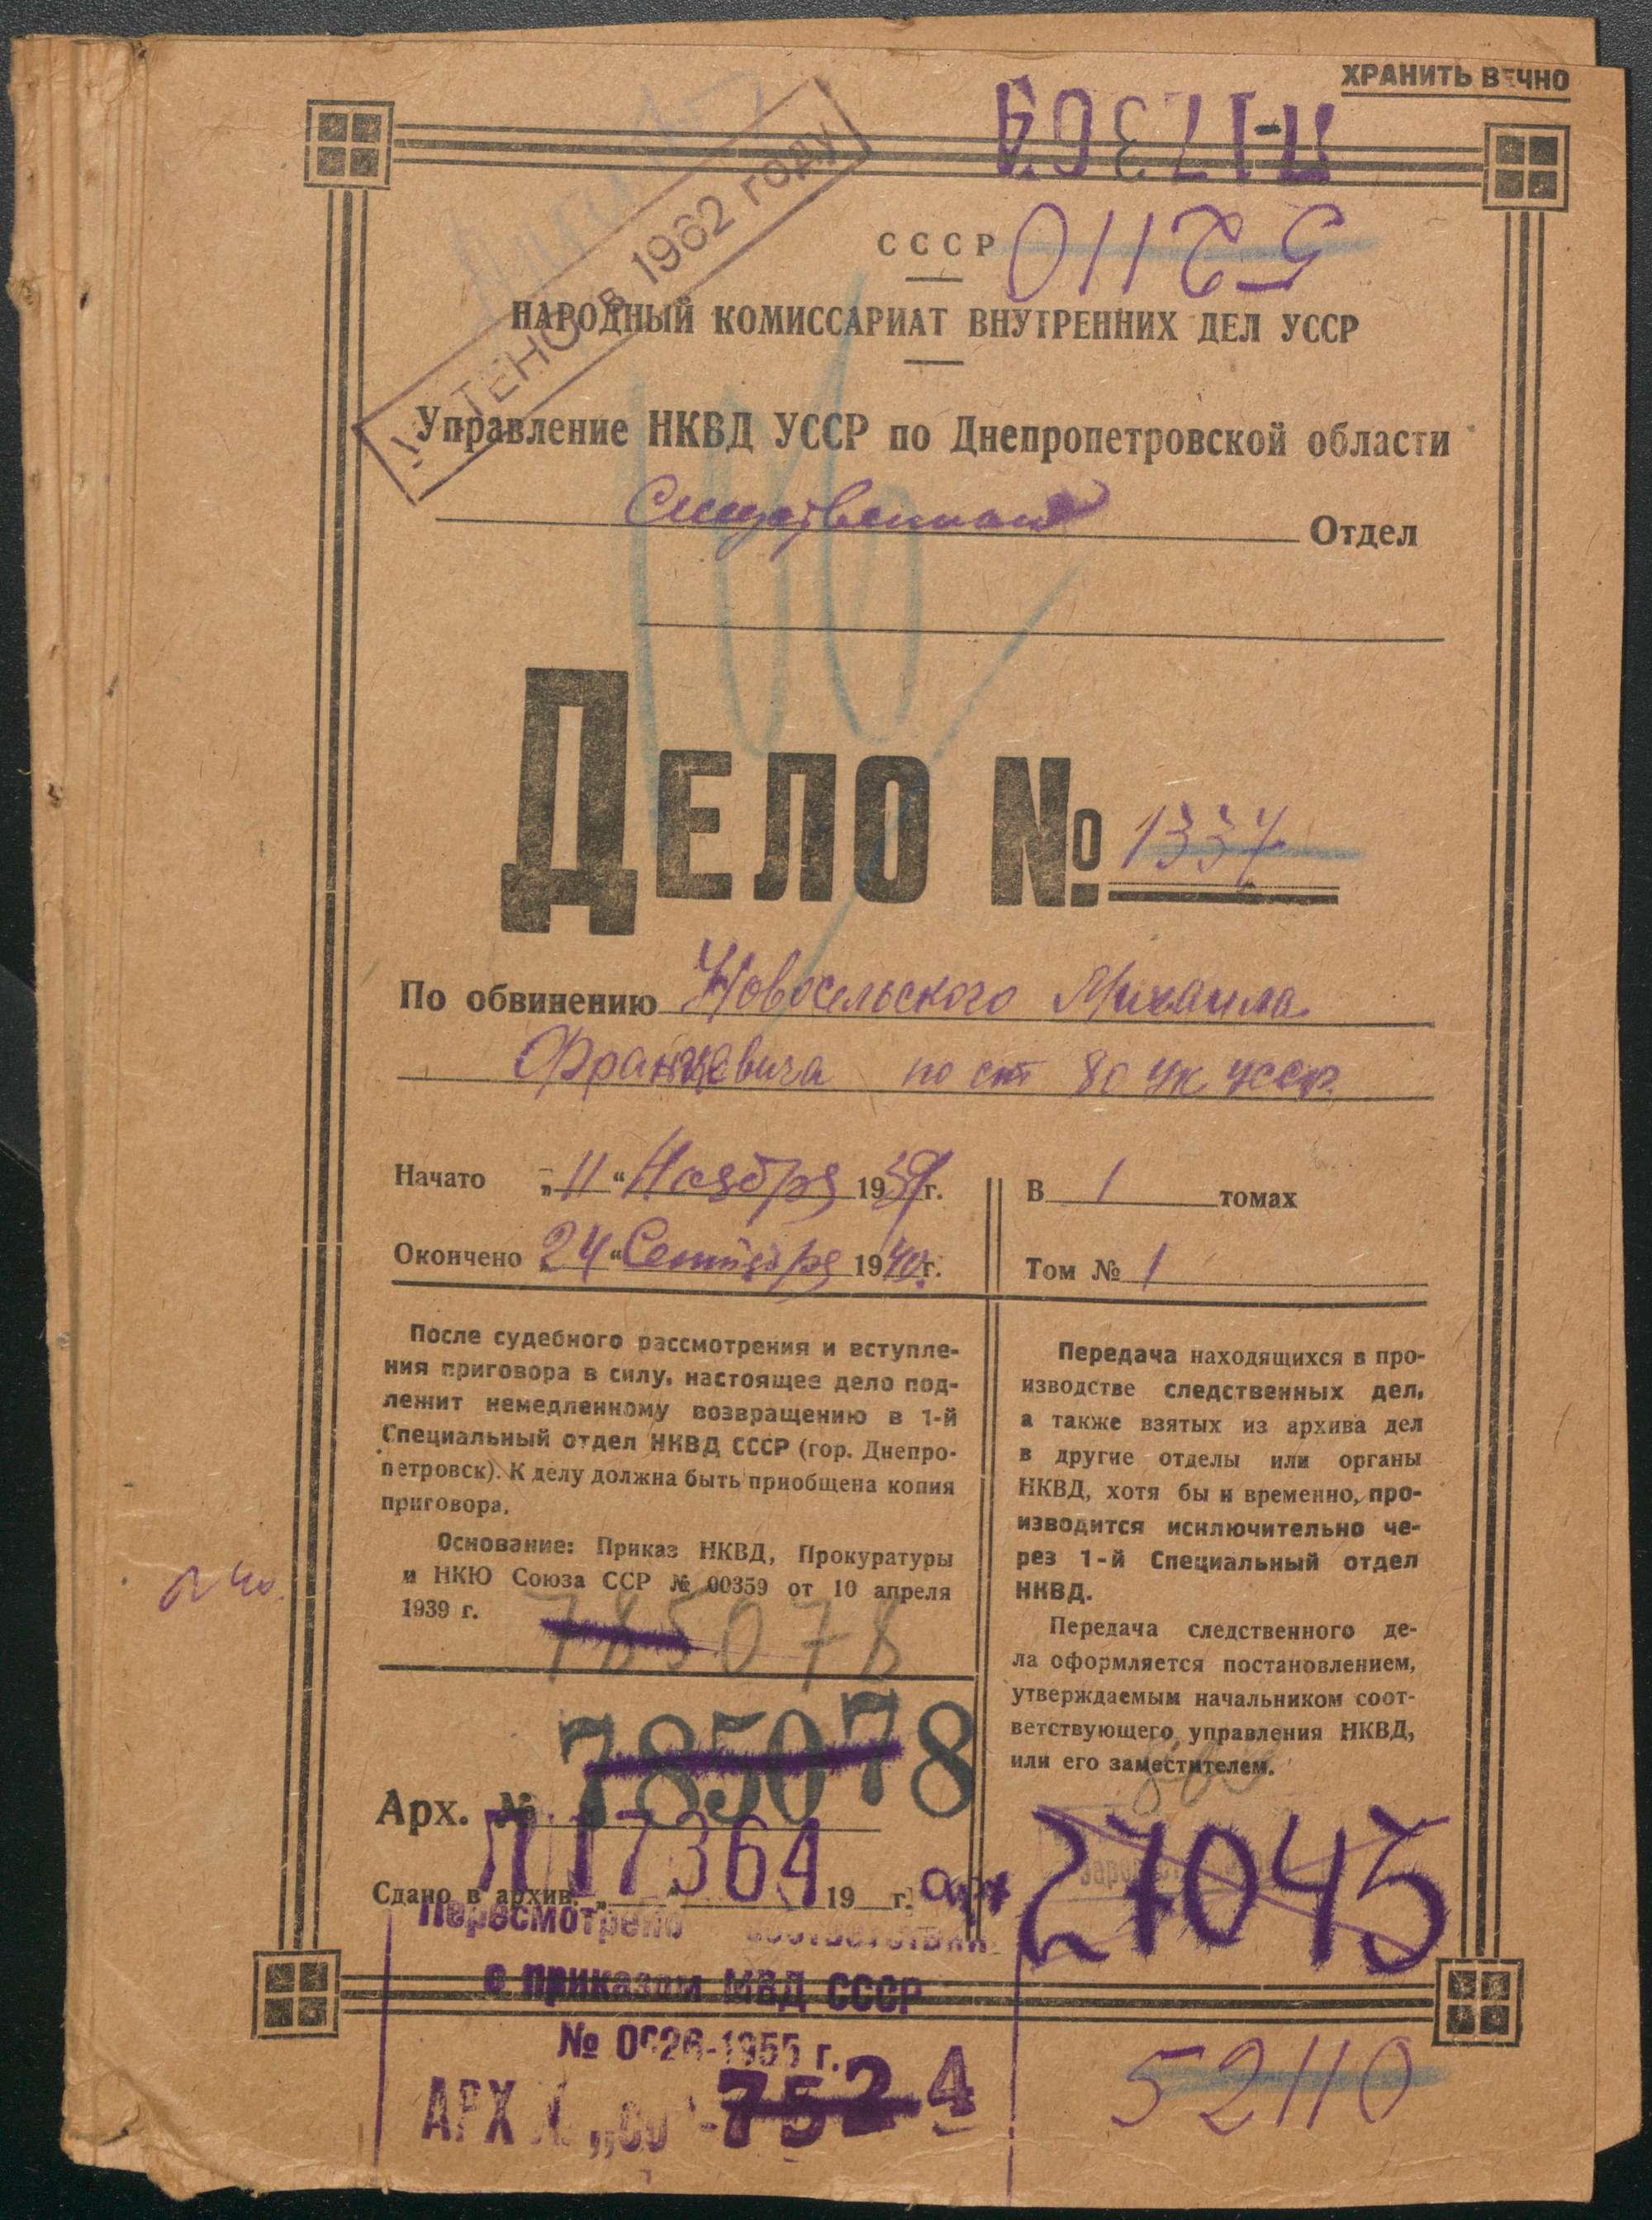 ХРАНИТЬ ВЕЧНО
П-17364
52110
СССР
НАРОДНЫЙ КОМИССАРИАТ ВНУТРЕННИХ ДЕЛ УССР
УЧТЕНО в 1962 году
Управление НКВД УССР по Днепропетровской области
Следственный Отдел
ДЕЛО № 1337
По обвинению Новосельского Михаила
Францевича по ст 80 УК УССР.
Начато „11“ Ноября 1939 г.
Окончено 24 “ Сентября 1940 г.
В 1 томах
Том № 1
После судебного рассмотрения и вступле-
ния приговора в силу, настоящее дело под-
лежит немедленному возвращению в 1-й
Специальный отдел НКВД СССР (гор. Днепро-
петровск). К делу должна быть приобщена копия
приговора.
Основание: Приказ НКВД, Прокуратуры
и НКЮ Союза ССР № 00359 от 10 апреля
1939 г.
785078
Передача находящихся в про-
изводстве следственных дел,
а также взятых из архива дел
в другие отделы или органы
НКВД, хотя бы и временно, про-
изводится исключительно че-
рез 1-й Специальный отдел
НКВД.
Передача следственного де-
ла оформляется постановлением,
утверждаемым начальником соот-
ветствующего управления НКВД,
или его заместителем.
785078
Арх. №
П17364
Сдано в архив „ “ 19 г.
арх 27045
Пересмотрено в соответствии
с приказом МВД СССР
№ 0026-1955 г.
АРХ 7524
52110